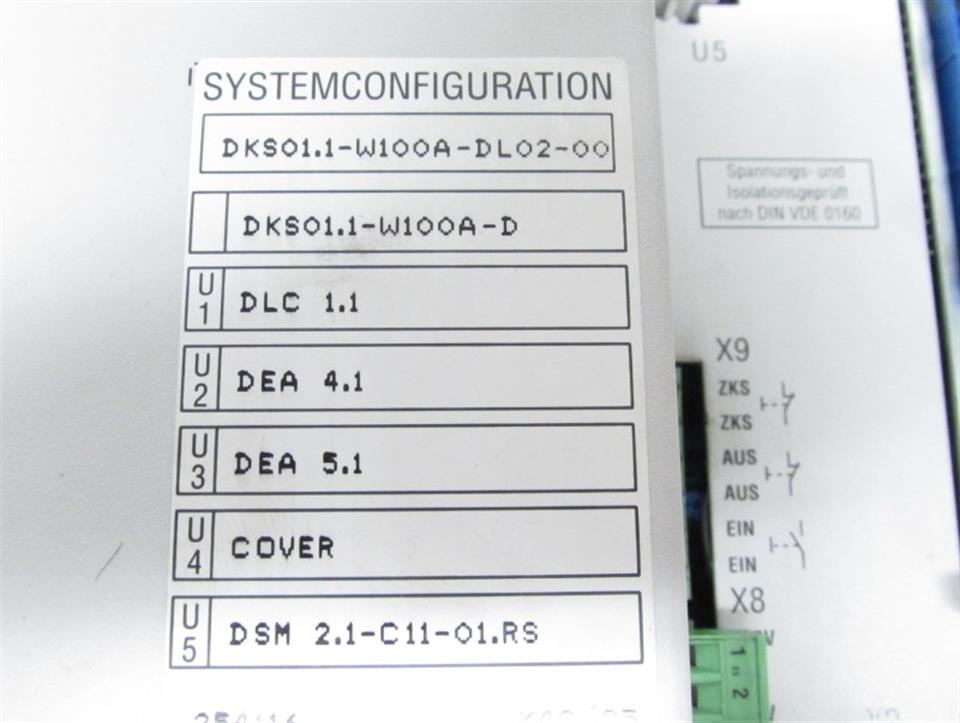 SYSTEMCONFIGURATION
DKS01.1-W100A-DL02-00
DKS01.1-W100A-D
U1 DLC 1.1
U2 DEA 4.1
U3 DEA 5.1
U4 COVER
U5 DSM 2.1-C11-01.RS
U5
Spannungs- und
Isolationsgeprüft
nach DIN VDE 0160
X9
ZKS
ZKS
AUS
AUS
EIN
EIN
X8
1
2